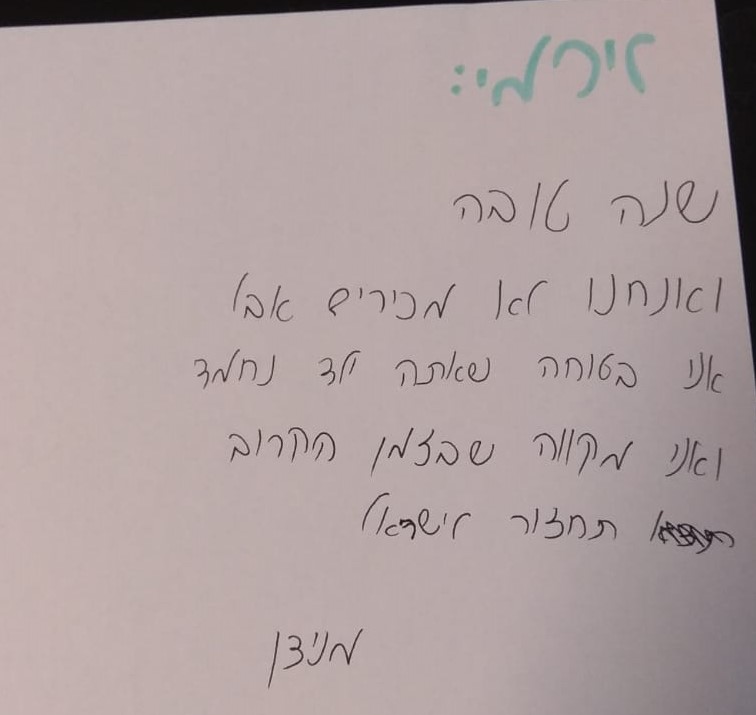 לירמי:
שנה טובה
ואנחנו לא מכירים אבל
אני בטוחה שאתה ילד נחמד
ואני מקווה שבזמן הקרוב
תחזור לישראל
מניצן